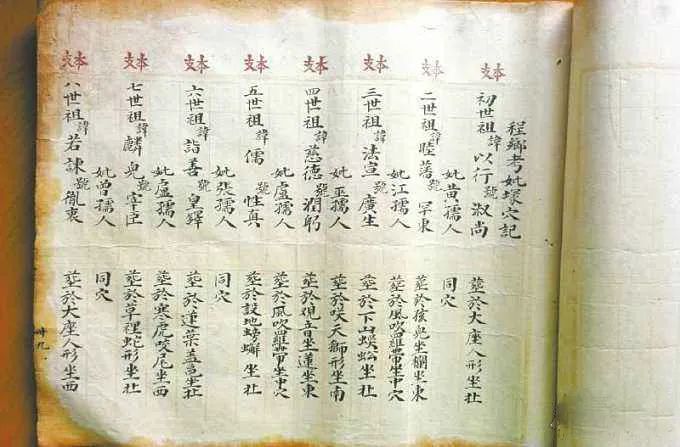 程鄉考妣墳穴記
本支
初世祖諱以行號淑尚
葬於大座人形坐北
妣黃孺人
同穴
本支
二世祖諱睦藩號罕東
葬於猿與坐棚坐東
妣江孺人
葬於風吹羅帶坐申穴
本支
三世祖諱法宣號廣生
葬於下山蜈蚣坐北
妣巫孺人
葬於咲天獅形坐南
本支
四世祖諱慈德號潤躬
葬於觀音坐蓮坐東
妣盧孺人
葬於風吹羅帶坐申穴
本支
五世祖諱儒號性真
葬於設地螃蠏坐北
妣張孺人
同穴
本支
六世祖諱詣善號皇鐸
葬於蓮葉蓋龜坐北
妣盧孺人
葬於寒虎咬尼坐西
本支
七世祖諱麟兒號宰臣
葬於草裡蛇形坐北
妣曾孺人
同穴
本支
八世祖諱若諫號胤衷
葬於大座人形坐西
廿九